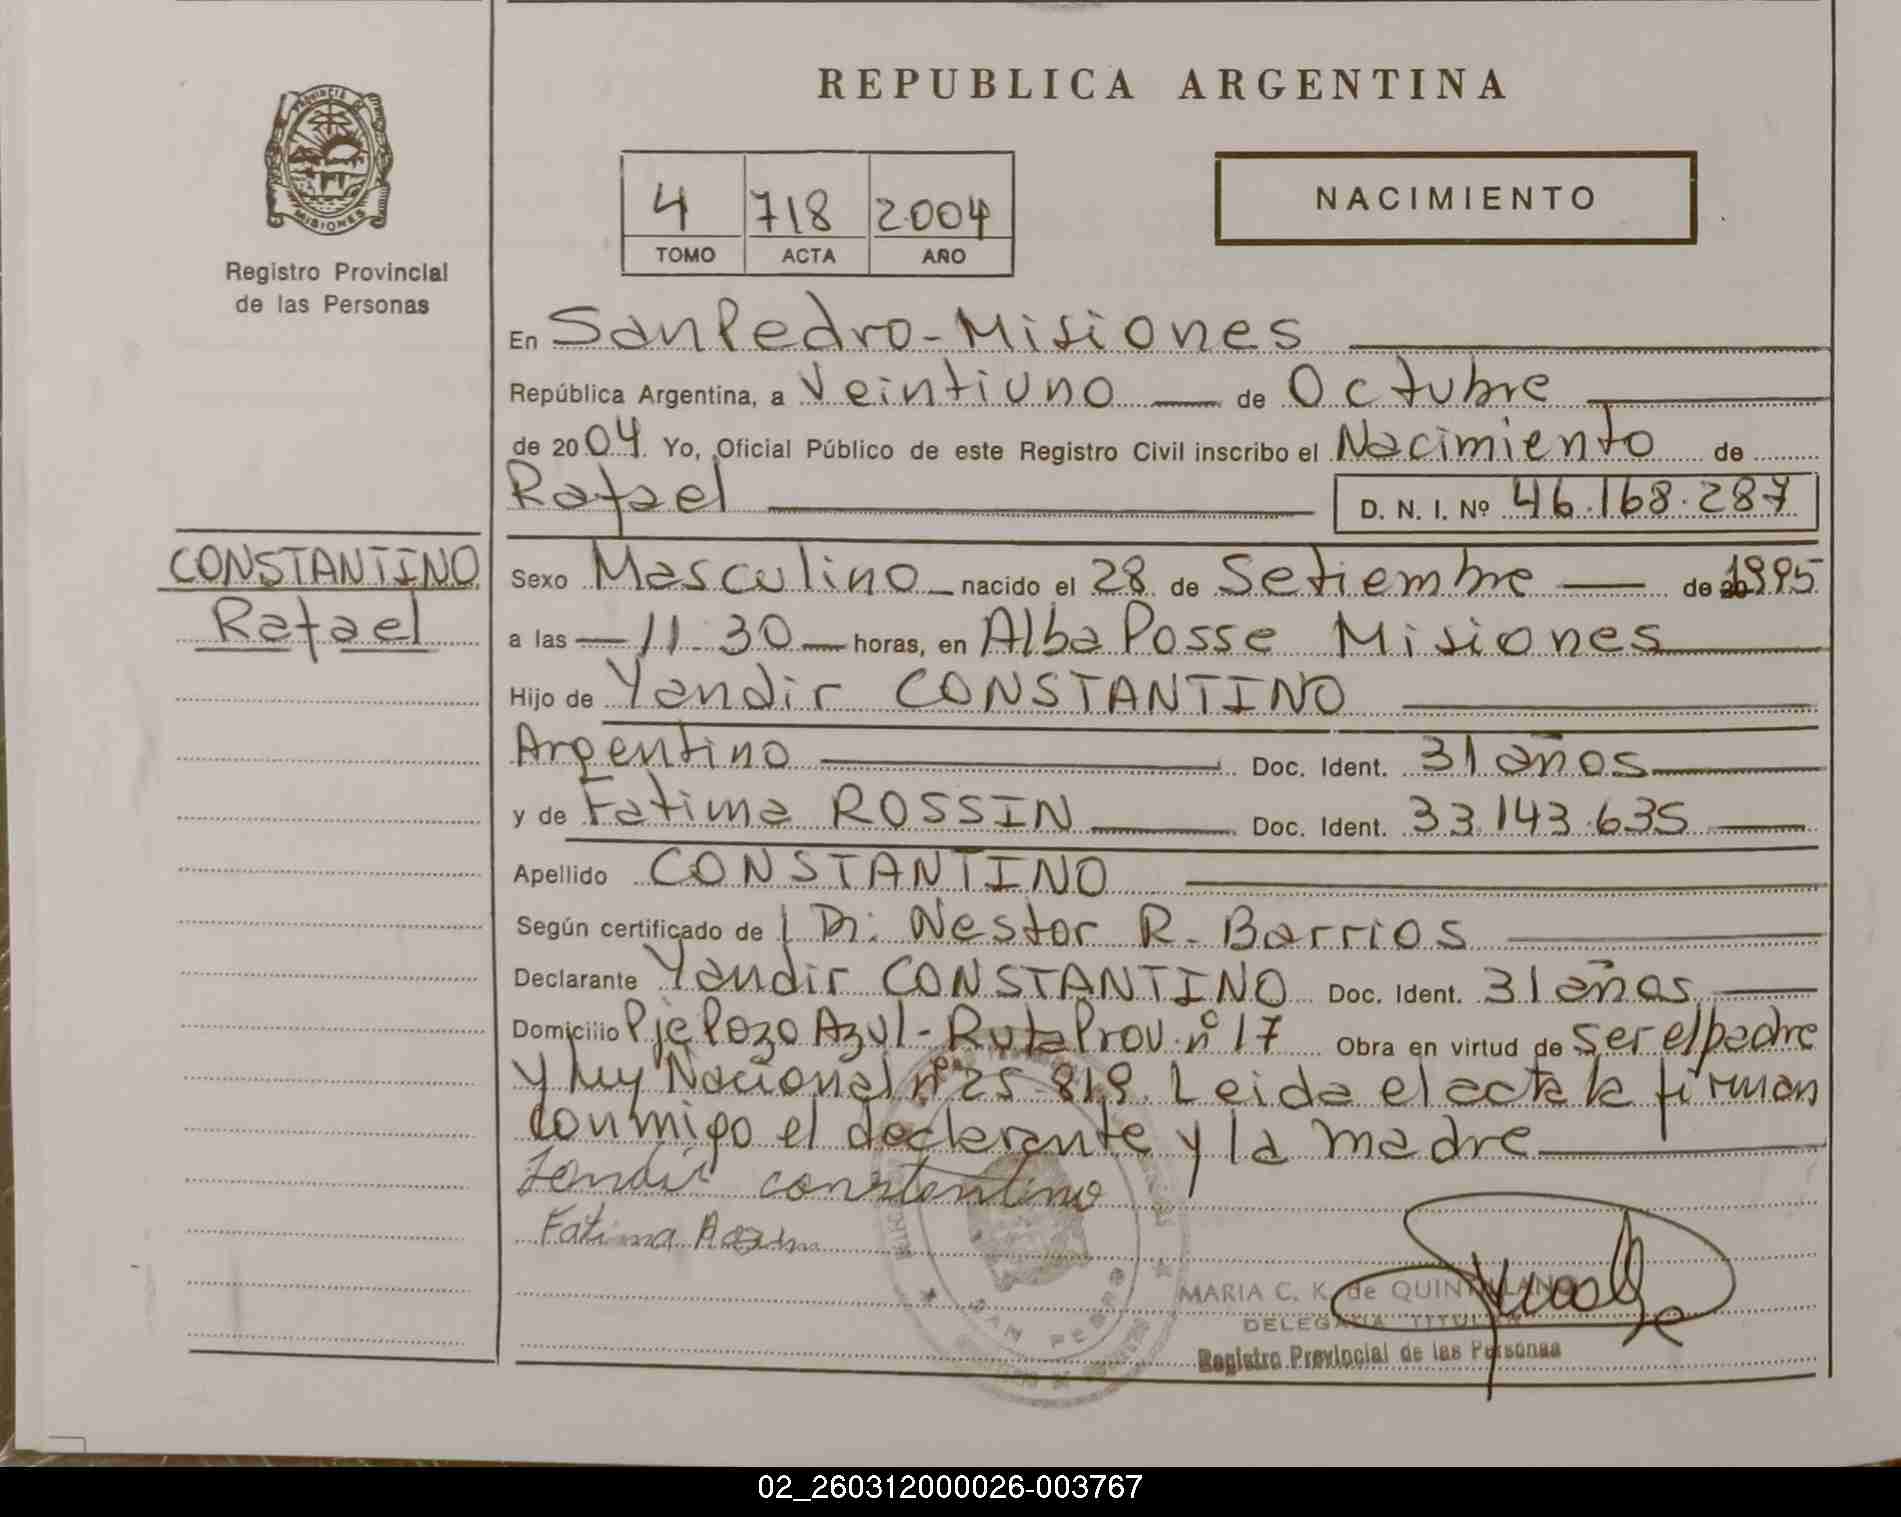 REPUBLICA ARGENTINA
PROVINCIA DE
MISIONES
Registro Provincial
de las Personas
4 718 2004
TOMO ACTA AÑO
NACIMIENTO
En San Pedro - Misiones
República Argentina, a Veintiuno de Octubre
de 2004. Yo, Oficial Público de este Registro Civil inscribo el Nacimiento de
Rafael D. N. I. Nº 46.168.287
CONSTANTINO
Rafael
Sexo Masculino nacido el 28 de Setiembre de 1995
a las 11.30 horas, en Alba Posse Misiones
Hijo de Yandir CONSTANTINO
Argentino Doc. Ident. 31 años
y de Fatima ROSSIN Doc. Ident. 33.143.635
Apellido CONSTANTINO
Según certificado de Dr. Nestor R. Barrios
Declarante Yandir CONSTANTINO Doc. Ident. 31 años
Domicilio Pje Pozo Azul - Ruta Prov. nº 17 Obra en virtud de ser el padre
y ley Nacional nº 25.819. Leida el acta la firman
conmigo el declarante y la madre
constantino
Fatima
SAN PEDRO
MARIA C. K. de QUINTILLANO
DELEGADA TITULAR
Registro Provincial de las Personas
02_260312000026-003767